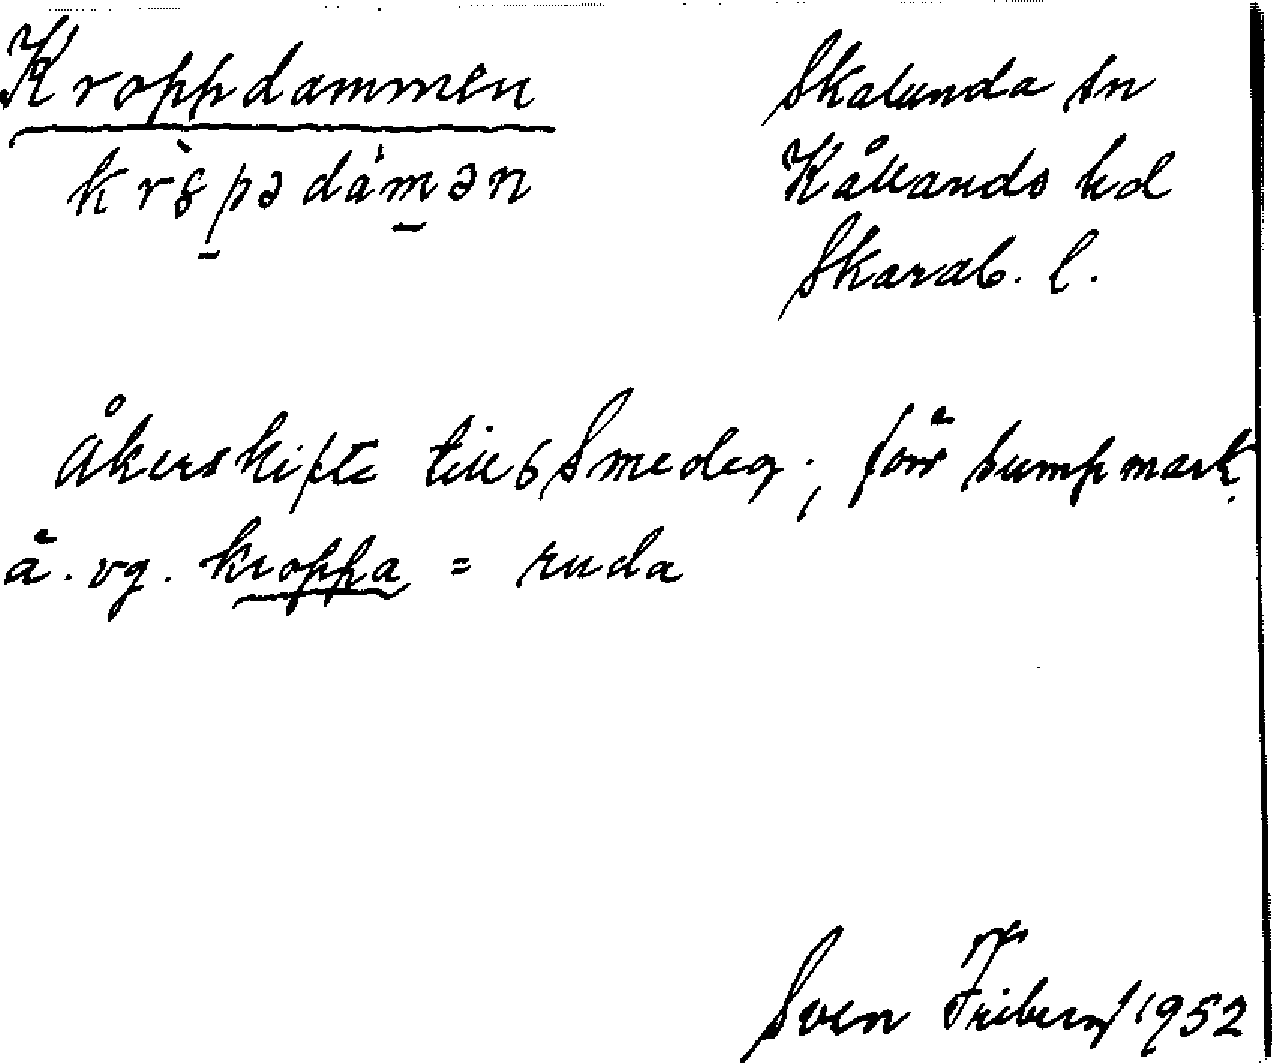 Kroppdammen
krɤ̀pədámən
Skalunda sn
Kållands hd
Skarab. l.
Åkerskifte till Smedeg.; förr sumpmark.
ä. vg. kroppa = ruda
Sven Friberg 1952